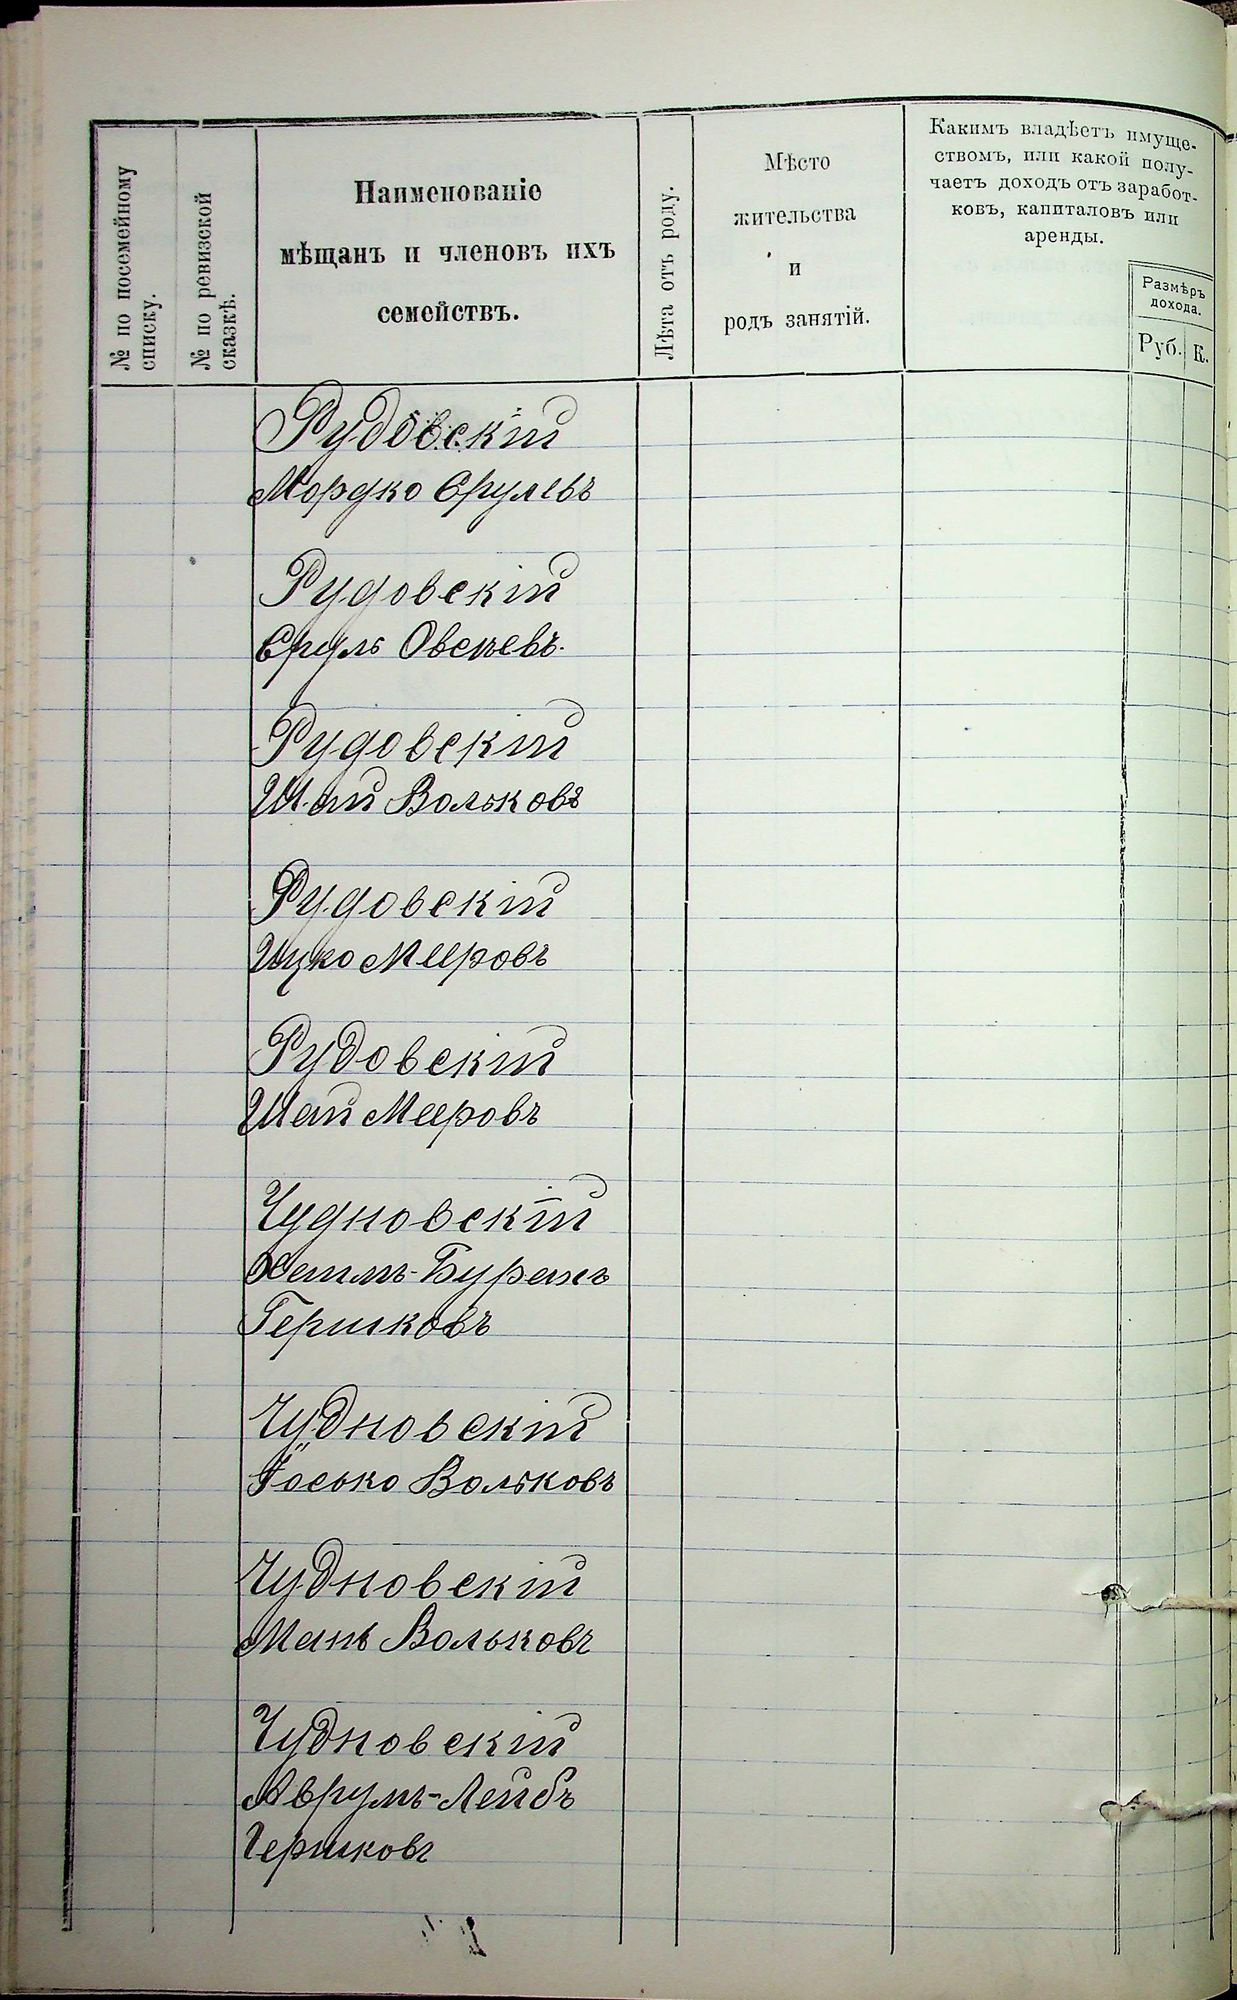 № по посемейному
списку.
№ по ревизской
сказкѣ.
Наименованіе
мѣщанъ и членовъ ихъ
семействъ.
Лѣта отъ роду.
Мѣсто
жительства
и
родъ занятій.
Какимъ владѣетъ имуще-
ствомъ, или какой полу-
чаетъ доходъ отъ заработ-
ковъ, капиталовъ или
аренды.
Размѣръ
дохода.
Руб.
К.
Рудовскій
Мордко Срулевъ
Рудовскій
Сруль Овсеевъ.
Рудовскій
Шай Вольковъ
Рудовскій
Ицко Мееровъ
Рудовскій
Шай Мееровъ
Чудновскій
Хаимъ-Бурахъ
Гершковъ
Чудновскій
Іосько Вольковъ
Чудновскій
Мань Вольковъ
Чудновскій
Аврумъ-Лейбъ
Гершковъ